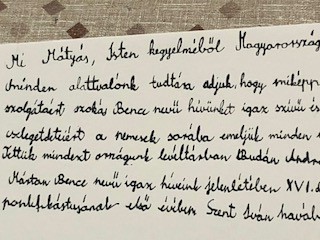 Mi Mátyás, Isten kegyelméből Magyarország
minden alattvalónk tudtára adjuk, hogy miképp
szolgátaért szokás Bence nevű hívünket igaz szívű és
cselegetdetiért a nemesek sorába emeljük minden
Tettük mindezt országunk levéltárban Budán András
Mástan Bence nevű igaz híveink jelenlétében XVI.
pontifikástusának első évében Szent Iván havába